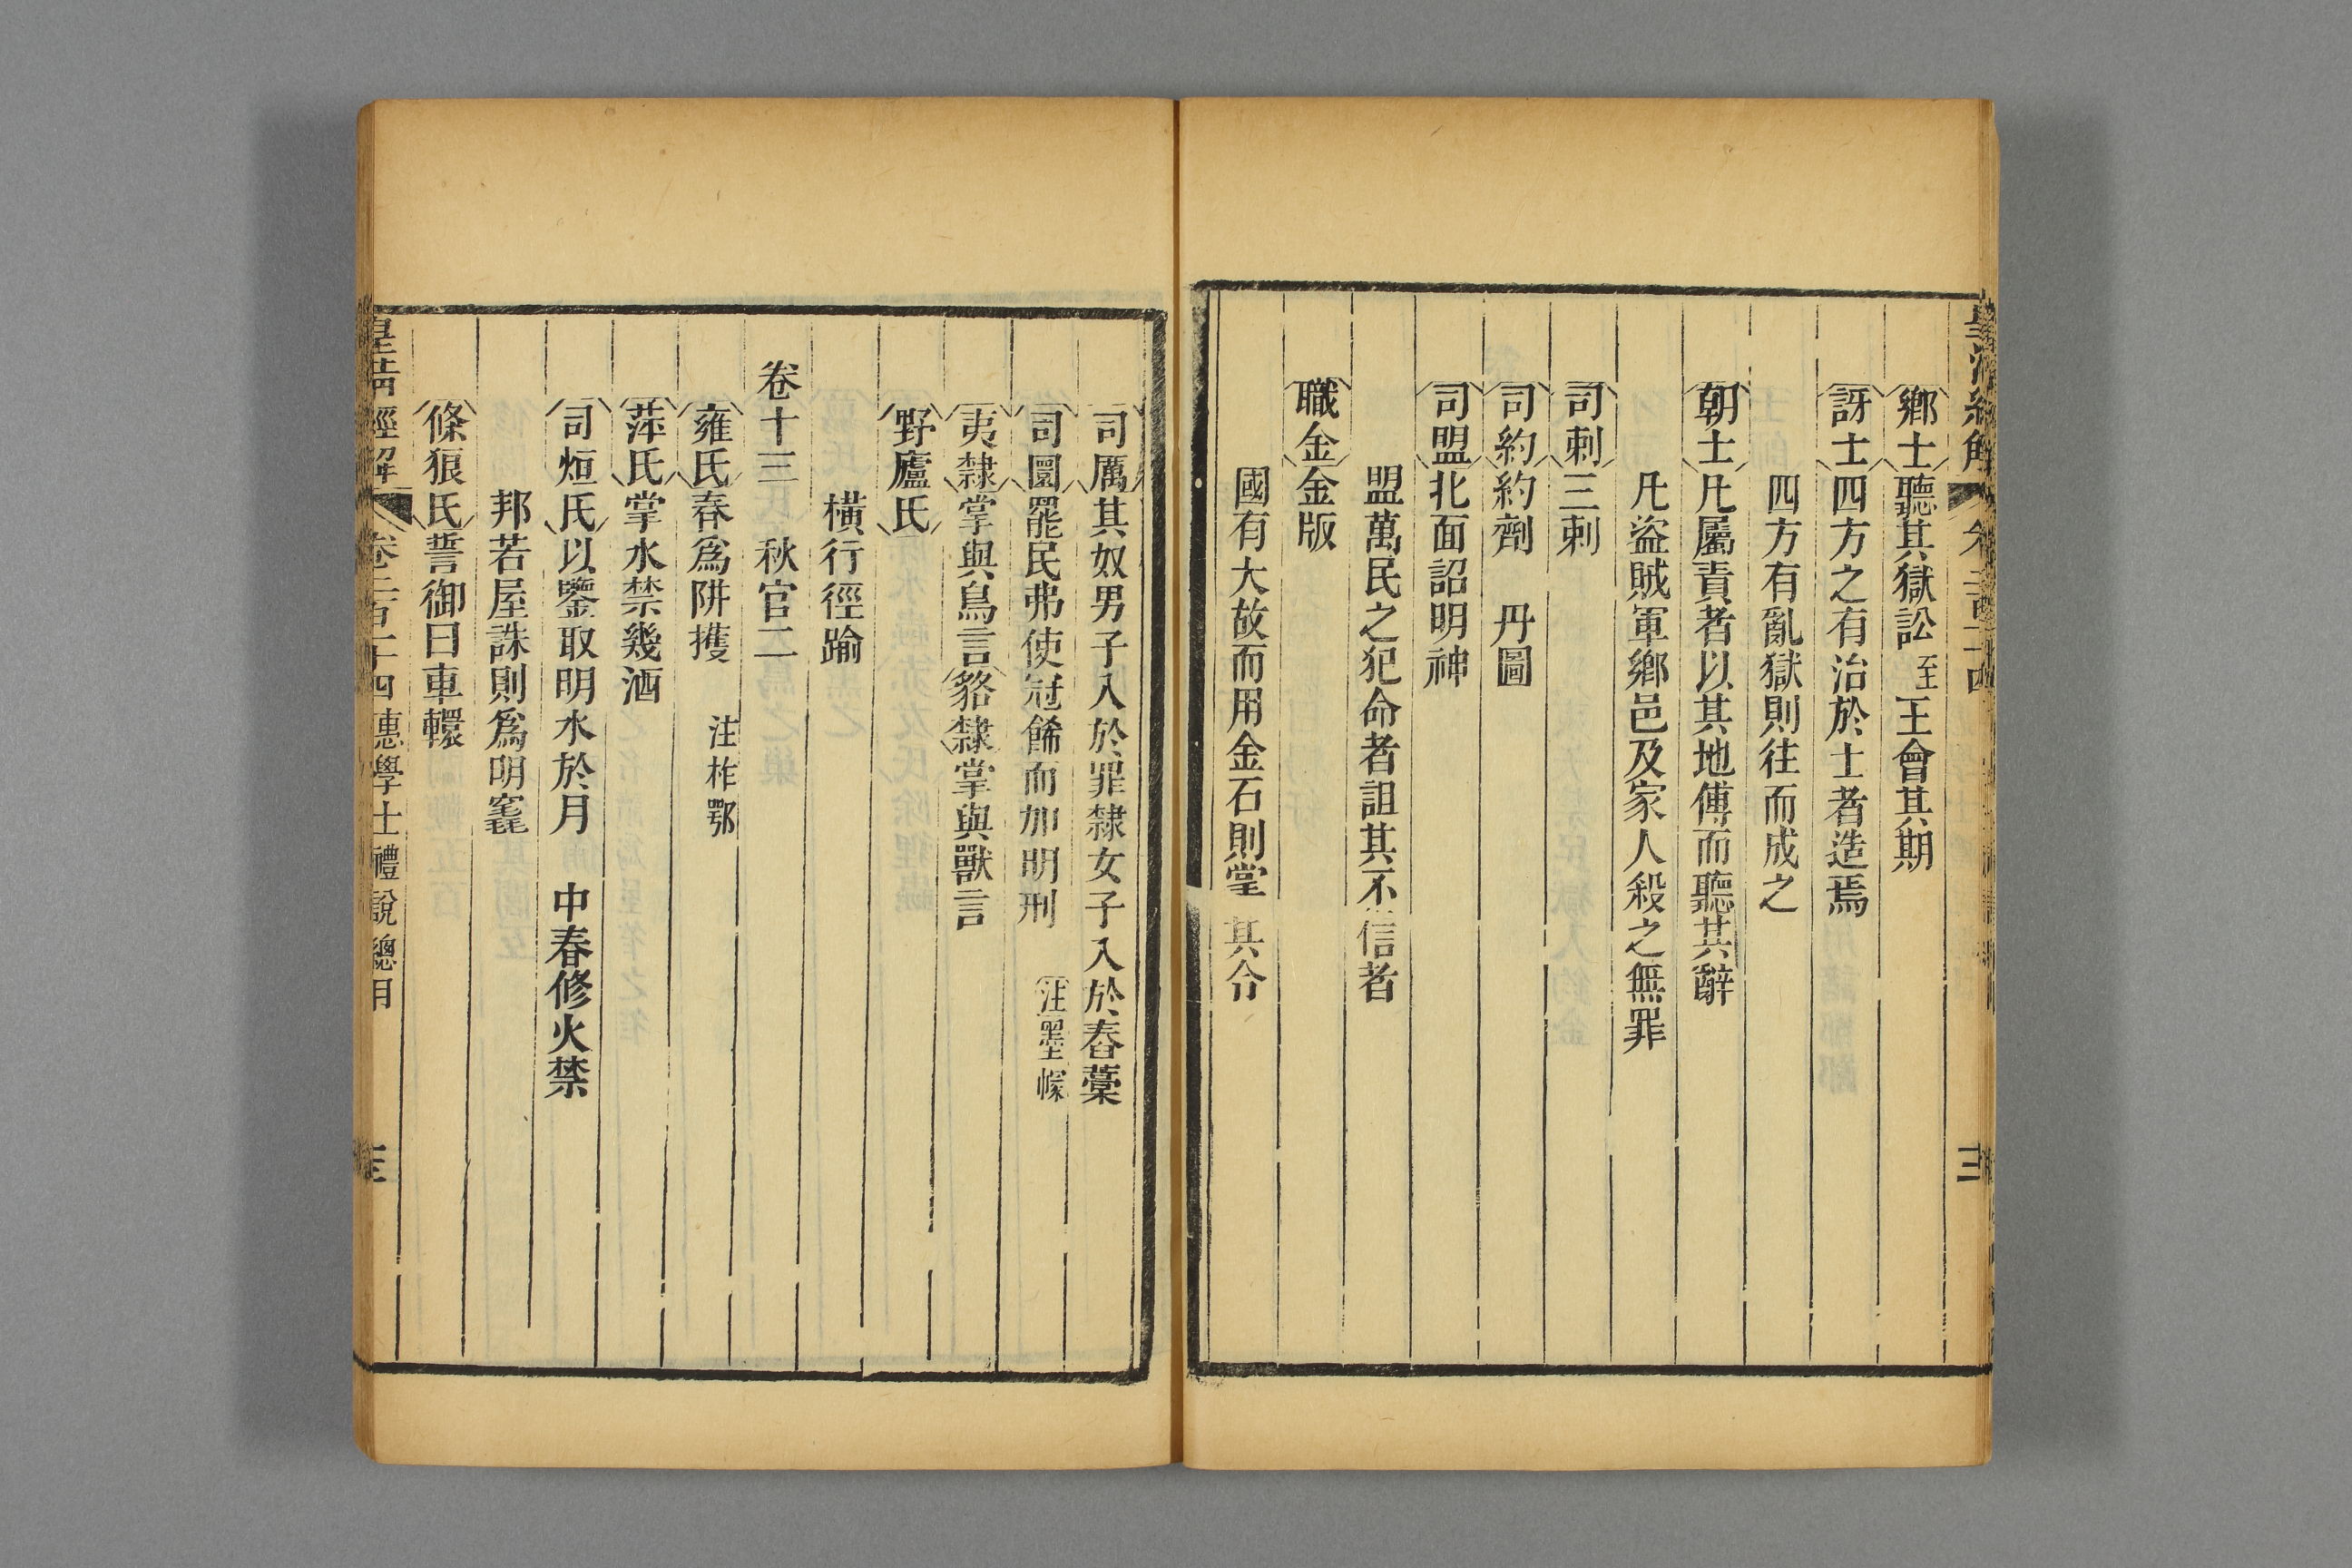 鄉士聽其獄訟至王會其期
訝士四方之有治於士者造焉
四方有亂獄則往而成之
朝士凡屬責者以其地傅而聽其辭
凡盜賊軍鄉邑及家人殺之無罪
司刺三刺
司約約劑　丹圖
司盟北面詔明神
盟萬民之犯命者詛其不信者
職金金版
國有大故而用金石則掌其
司厲其奴男子入於罪隸女子入於舂藁
司圜罷民弗使冠飾而加明刑　注墨幪
夷隸掌與鳥言貉隸掌與獸言
野廬氏
橫行徑踰
卷十三　秋官二
雍氏春爲阱擭　注柞鄂
萍氏掌水禁幾酒
司烜氏以鑒取明水於月　中春修火禁
邦若屋誅則爲明竁
條狼氏誓御曰車轘
皇清經解　卷二百十四　惠學士禮說總目